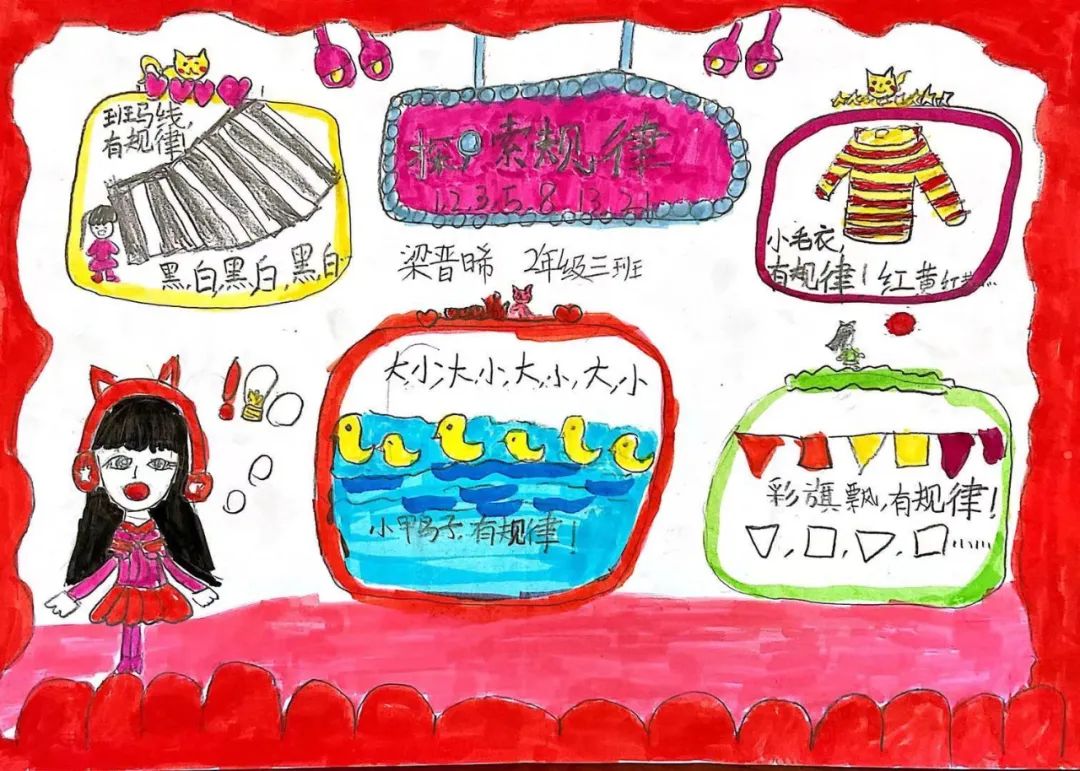 探索规律
1,2,3,5,8,13,21
梁晋晞 2年级三班
班马线,
有规律!
黑,白,黑,白,黑,白
小毛衣,
有规律!红,黄,红,黄...
大,小,大,小,大,小,大,小
小鸭子,有规律!
彩旗飘,有规律!